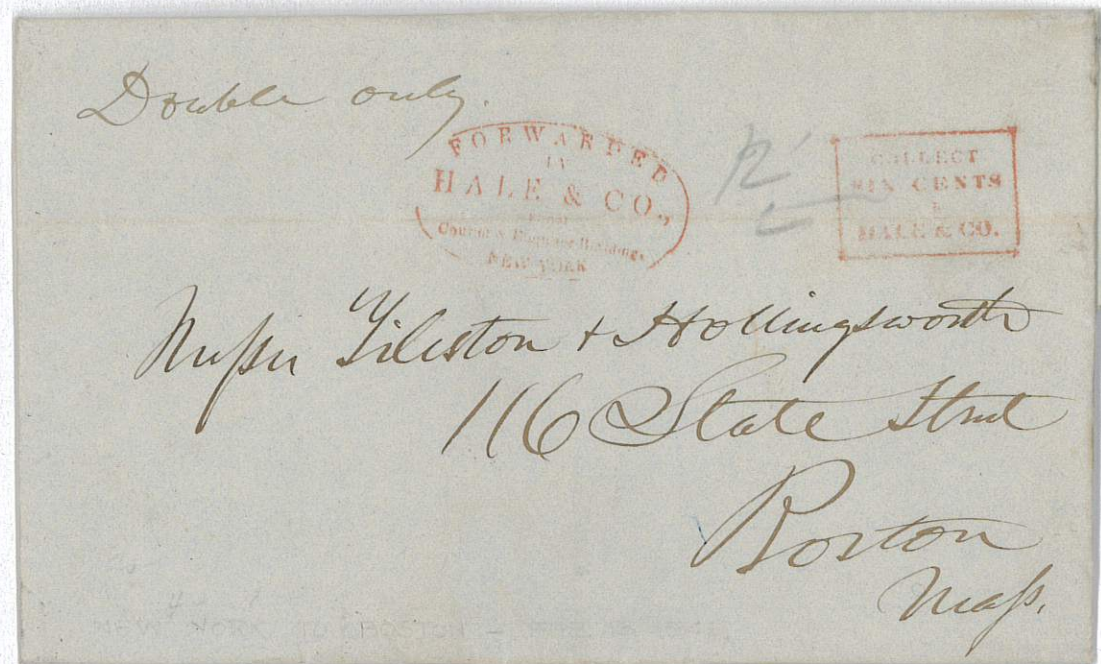 Double only.
FORWARDED
BY
HALE & CO.,
FROM
Courier & Enquirer Buildings,
NEW YORK
12
COLLECT
SIX CENTS
HALE & CO.
Messrs Tileston & Hollingsworth
116 State Street
Boston
Mass.
NEW YORK TO BOSTON -